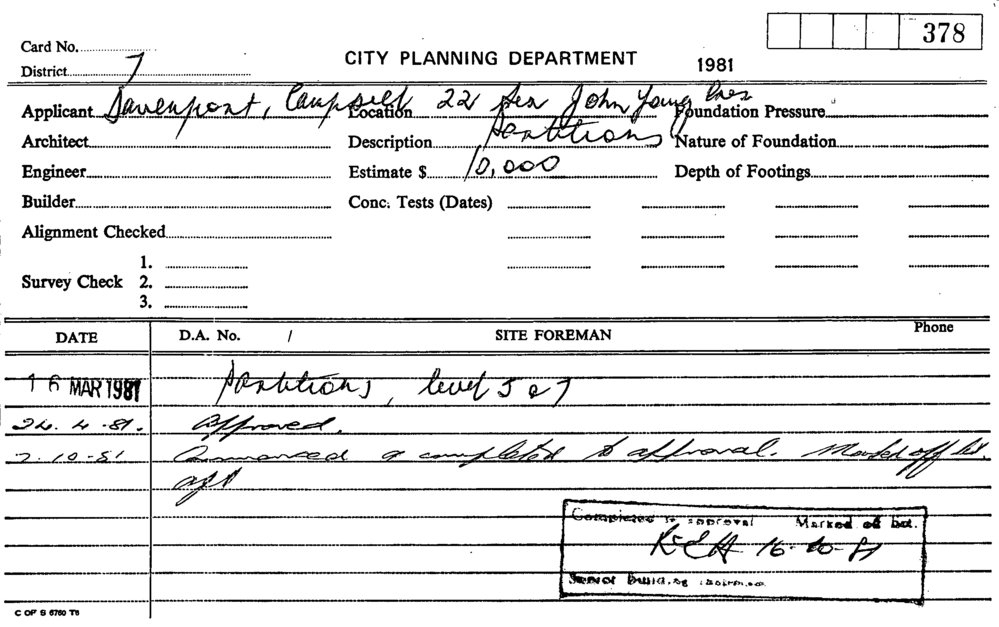 378
Card No.
CITY PLANNING DEPARTMENT 1981
District 7
Applicant Davenport, Campbell Location 22 Sir John Young Cres Foundation Pressure
Architect Description Partitions Nature of Foundation
Engineer Estimate $ 10,000 Depth of Footings
Builder Conc. Tests (Dates)
Alignment Checked
1.
Survey Check 2.
3.
DATE D.A. No. / SITE FOREMAN Phone
16 MAR 1981 Partitions, level 5 & 7
24.4.81. Approved.
7.10.81 Commenced & completed to approval. Marked off list.
Completed to approval Marked off list.
16-10-81
Senior Building
C OF S 6760 T6